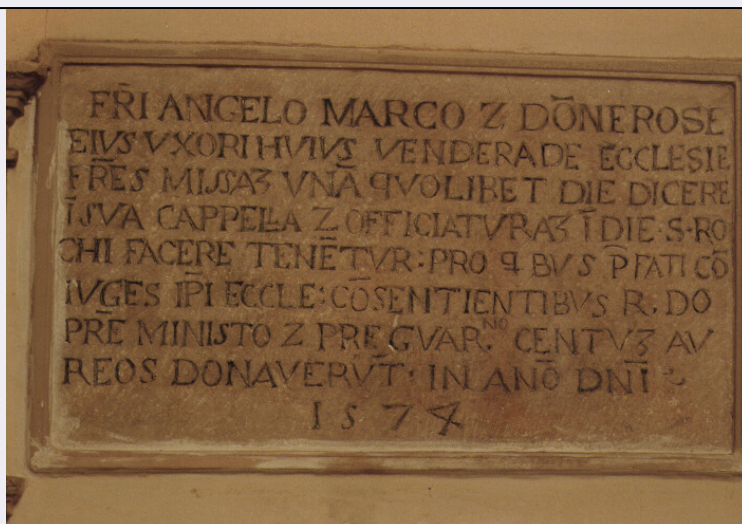 FR̄I ANGELO MARCO Z DŌNEROSE
EIVS VXORI HVIVS VENDERADE ECCLESIE
FR̄ES MISSAꝫ VNĀ QVOLIBET DIE DICERE
ĪSVA CAPPELLA Z OFFICIATVRAꝫ Ī DIE·S·RO
CHI FACERE TENĒTVR:PRO ꟼBVS P̄FATI CŌ
IVGES IP̄I ECCLE:CŌSENTIENTIBVS R. DO
PR̄E MINISTO Z PRE GVAR.ᴺᴼ CENTVꝫ AV
REOS DONAVERV̄T· IN ANŌ DNĪ
1574